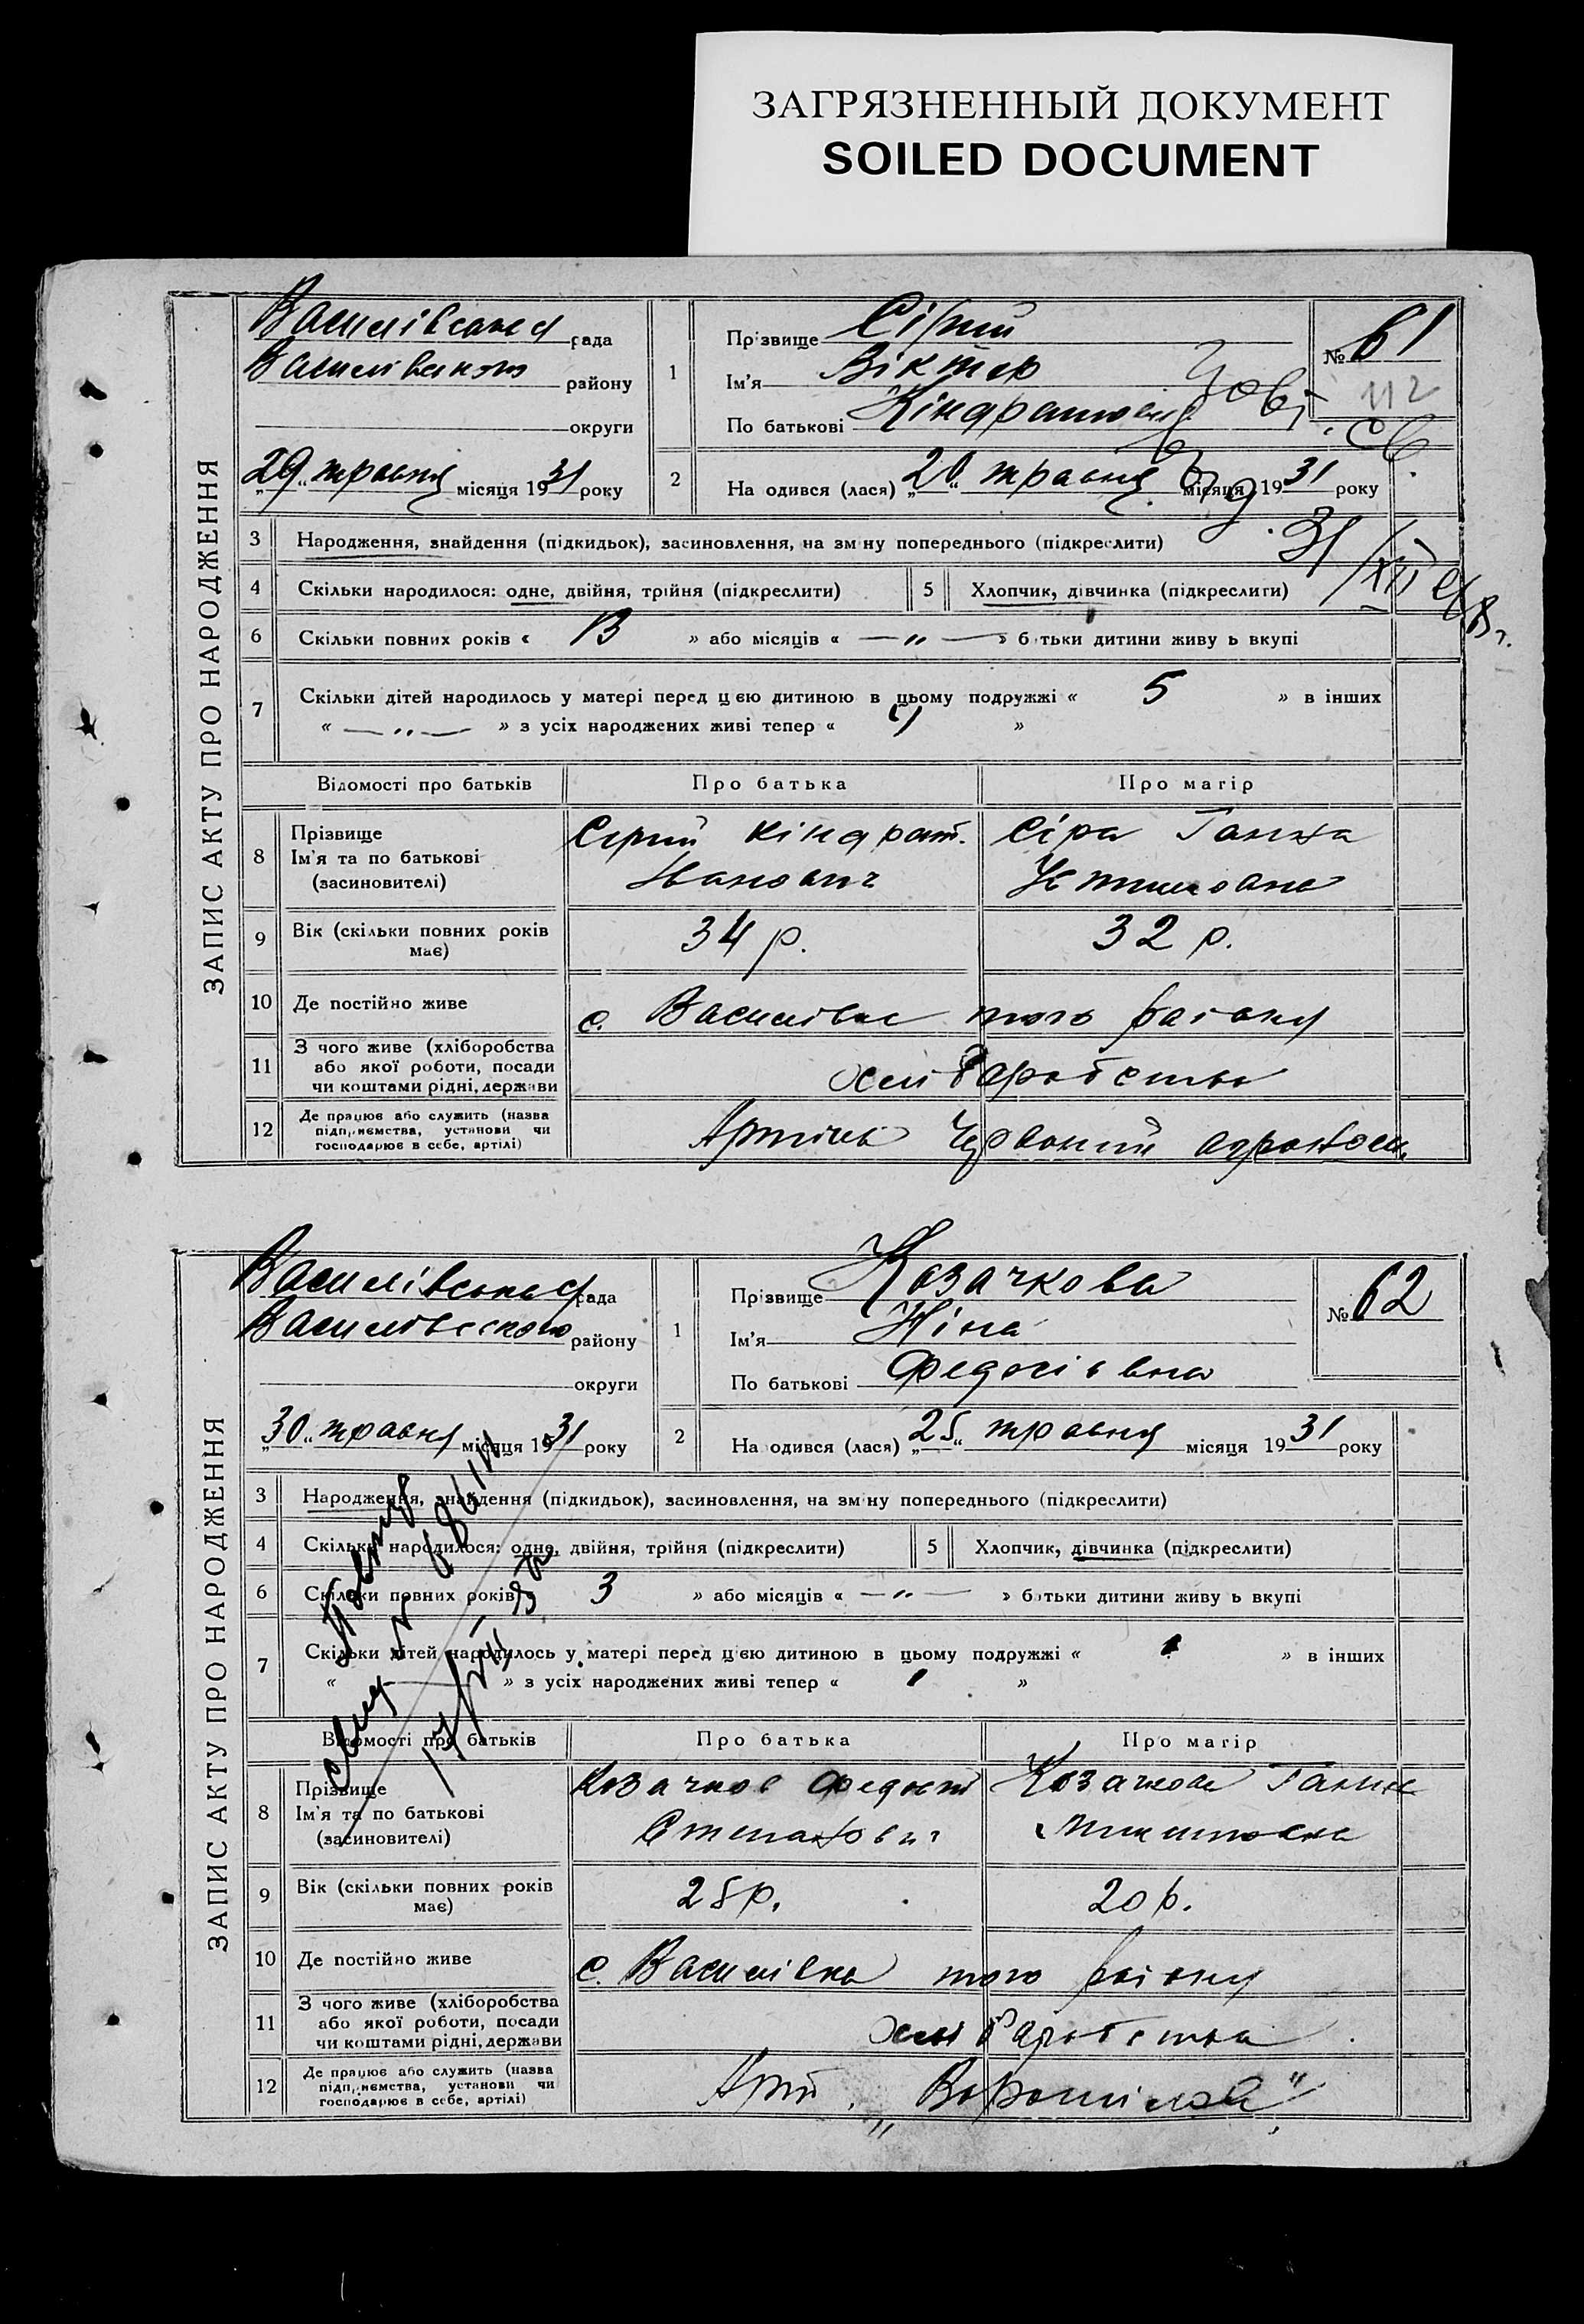 ЗАГРЯЗНЕННЫЙ ДОКУМЕНТ
SOILED DOCUMENT
ЗАПИС АКТУ ПРО НАРОДЖЕННЯ
Василівська рада
Василівського району
округи
„29“ травня місяця 1931 року
1
Прізвище Сірий
Ім'я Віктор
По батькові Кіндратович
№ 61
112
2
На одився (лася) „20“ травня місяця 1931 року
3 Народження, знайдення (підкидьок), засиновлення, на зм ну попереднього (підкреслити)
31/XII
4 Скільки народилося: одне, двійня, трійня (підкреслити)
5 Хлопчик, дівчинка (підкреслити)
6 Скільки повних років « 13 » або місяців « —„— » батьки дитини живу ь вкупі
7 Скільки дітей народилось у матері перед цією дитиною в цьому подружжі « 5 » в інших
« —„— » з усіх народжених живі тепер « 4 »
Відомості про батьків Про батька Про матір
8 Прізвище
Ім'я та по батькові
(засиновителі)
Сірий Кіндрат.
Іванович
Сіра Ганна
9 Вік (скільки повних років
має)
34 р.
32 р.
10 Де постійно живе
с. Василівка того району
11 З чого живе (хліборобства
або якої роботи, посади
чи коштами рідні, держави
хліборобство
12 Де працює або служить (назва
підприємства, установи чи
господарює в себе, артілі)
Артіль Червоний
ЗАПИС АКТУ ПРО НАРОДЖЕННЯ
Василівська рада
Василівського району
округи
„30“ травня місяця 1931 року
1
Прізвище Козачкова
Ім'я Ніна
По батькові Федосіївна
№ 62
2
На одився (лася) „25“ травня місяця 1931 року
3 Народження, знайдення (підкидьок), засиновлення, на зм ну попереднього (підкреслити)
4 Скільки народилося: одне, двійня, трійня (підкреслити)
5 Хлопчик, дівчинка (підкреслити)
6 Скільки повних років 3 » або місяців « —„— » батьки дитини живу ь вкупі
7 Скільки дітей народилось у матері перед цією дитиною в цьому подружжі « 1 » в інших
« » з усіх народжених живі тепер « 1 »
Відомості про батьків Про батька Про матір
8 Прізвище
Ім'я та по батькові
(засиновителі)
Козачков Федост
Степанович
Козачкова Ганна
9 Вік (скільки повних років
має)
25 р.
20 р.
10 Де постійно живе
с. Василівка того району
11 З чого живе (хліборобства
або якої роботи, посади
чи коштами рідні, держави
хліборобства
12 Де працює або служить (назва
підприємства, установи чи
господарює в себе, артілі)
Арт. „Ворошілов"